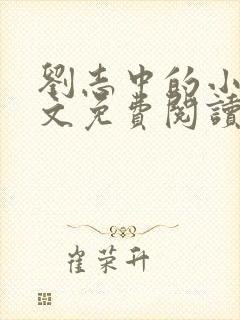 劉志中的小
文免費閱讀
崔荣升